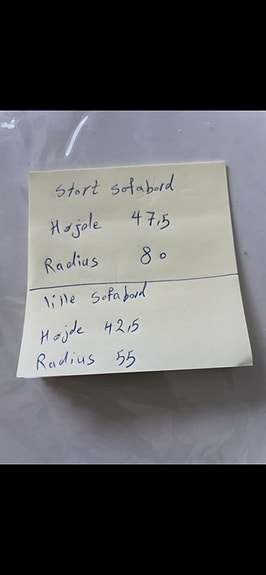 Stort sofabord
Højde 47,5
Radius 80
lille sofabord
Højde 42,5
Radius 55